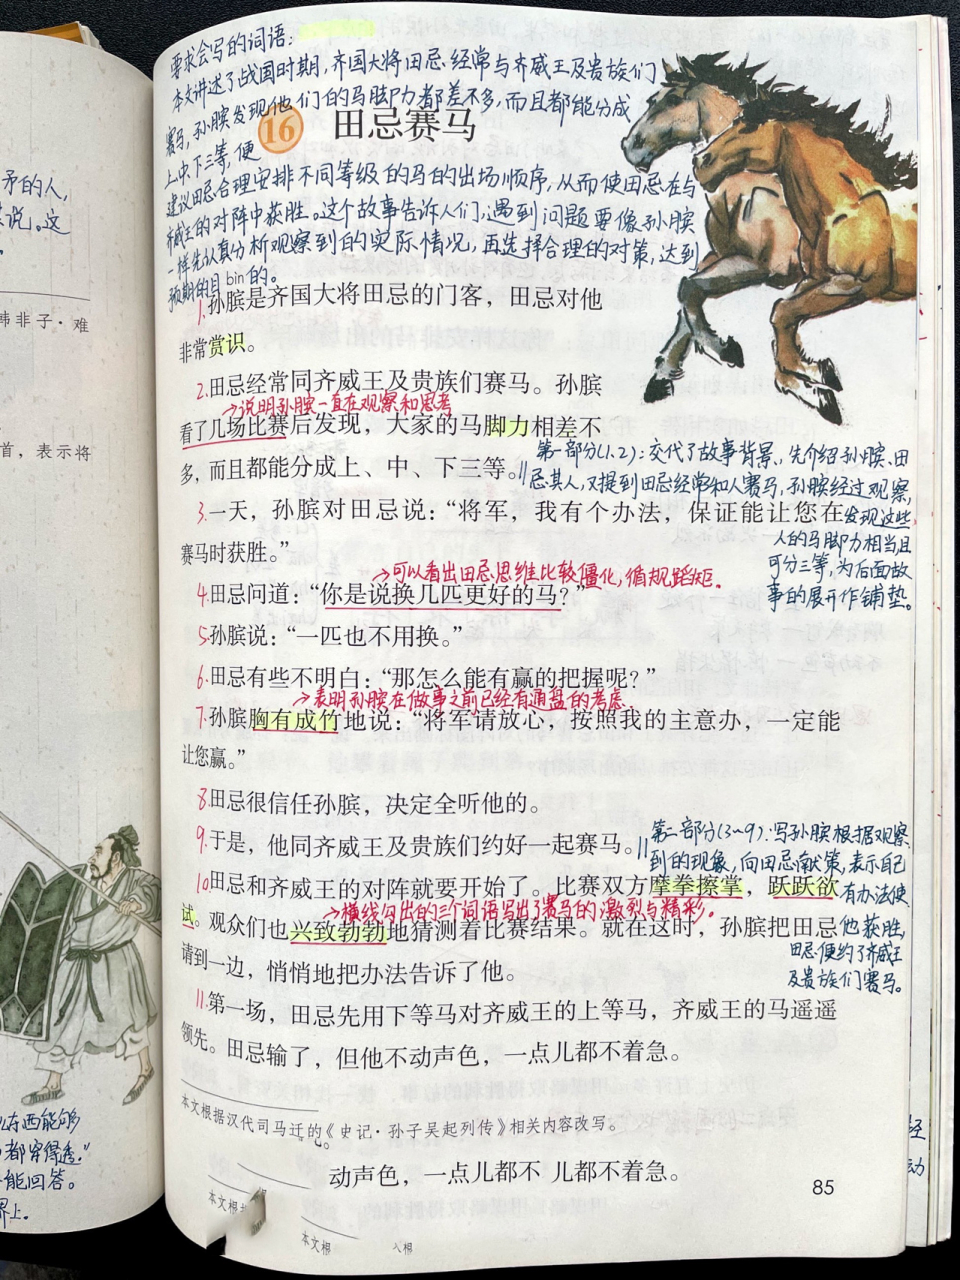 矛的人,
说。这
韩非子·难
首,表示将
东西能够
都穿得透。”
能回答。
界上。
要求会写的词语:
本文讲述了战国时期,齐国大将田忌经常与齐威王及贵族们
赛马,孙膑发现他们的马脚力都差不多,而且都能分成
上中下三等,便
16 田忌赛马
建议田忌合理安排不同等级的马的出场顺序,从而使田忌在与
齐威王的对阵中获胜。这个故事告诉人们:遇到问题要像孙膑
一样先认真分析观察到的实际情况,再选择合理的对策,达到
预期的目bin的。
1.孙膑是齐国大将田忌的门客,田忌对他
非常赏识。
2.田忌经常同齐威王及贵族们赛马。孙膑
→说明孙膑一直在观察和思考
看了几场比赛后发现,大家的马脚力相差不
多,而且都能分成上、中、下三等。‖
第一部分(1、2):交代了故事背景,先介绍孙膑、田
忌其人,又提到田忌经常和人赛马,孙膑经过观察,
发现这些
人的马脚力相当且
可分三等,为后面故
事的展开作铺垫。
3.一天,孙膑对田忌说:“将军,我有个办法,保证能让您在
赛马时获胜。”
→可以看出田忌思维比较僵化,循规蹈矩.
4.田忌问道:“你是说换几匹更好的马?”
5.孙膑说:“一匹也不用换。”
6.田忌有些不明白:“那怎么能有赢的把握呢?”
→表明孙膑在做事之前已经有通盘的考虑.
7.孙膑胸有成竹地说:“将军请放心,按照我的主意办,一定能
让您赢。”
8.田忌很信任孙膑,决定全听他的。
9.于是,他同齐威王及贵族们约好一起赛马。‖
第二部分(3~9):写孙膑根据观察
到的现象,向田忌献策,表示自己
有办法使
他获胜,
田忌便约了齐威王
及贵族们赛马。
10.田忌和齐威王的对阵就要开始了。比赛双方摩拳擦掌,跃跃欲
→横线勾出的三个词语写出了赛马的激烈与精彩。
试。观众们也兴致勃勃地猜测着比赛结果。就在这时,孙膑把田忌
请到一边,悄悄地把办法告诉了他。
11.第一场,田忌先用下等马对齐威王的上等马,齐威王的马遥遥
领先。田忌输了,但他不动声色,一点儿都不着急。
本文根据汉代司马迁的《史记·孙子吴起列传》相关内容改写。
动声色,一点儿都不 儿都不着急。
本文根
本文根
85